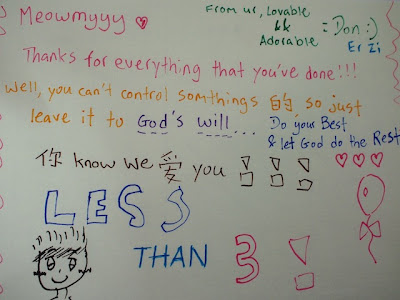 Meowmyyy
From ur, Lovable
&&
Adorable
= Don :)
Er Zi
Thanks for everything that you've done!!!
Well, you can't control somthings 的, so just
leave it to God's will...
Do your Best
& let God do the Rest
你 know we 爱 you !!!
LESS
THAN 3!